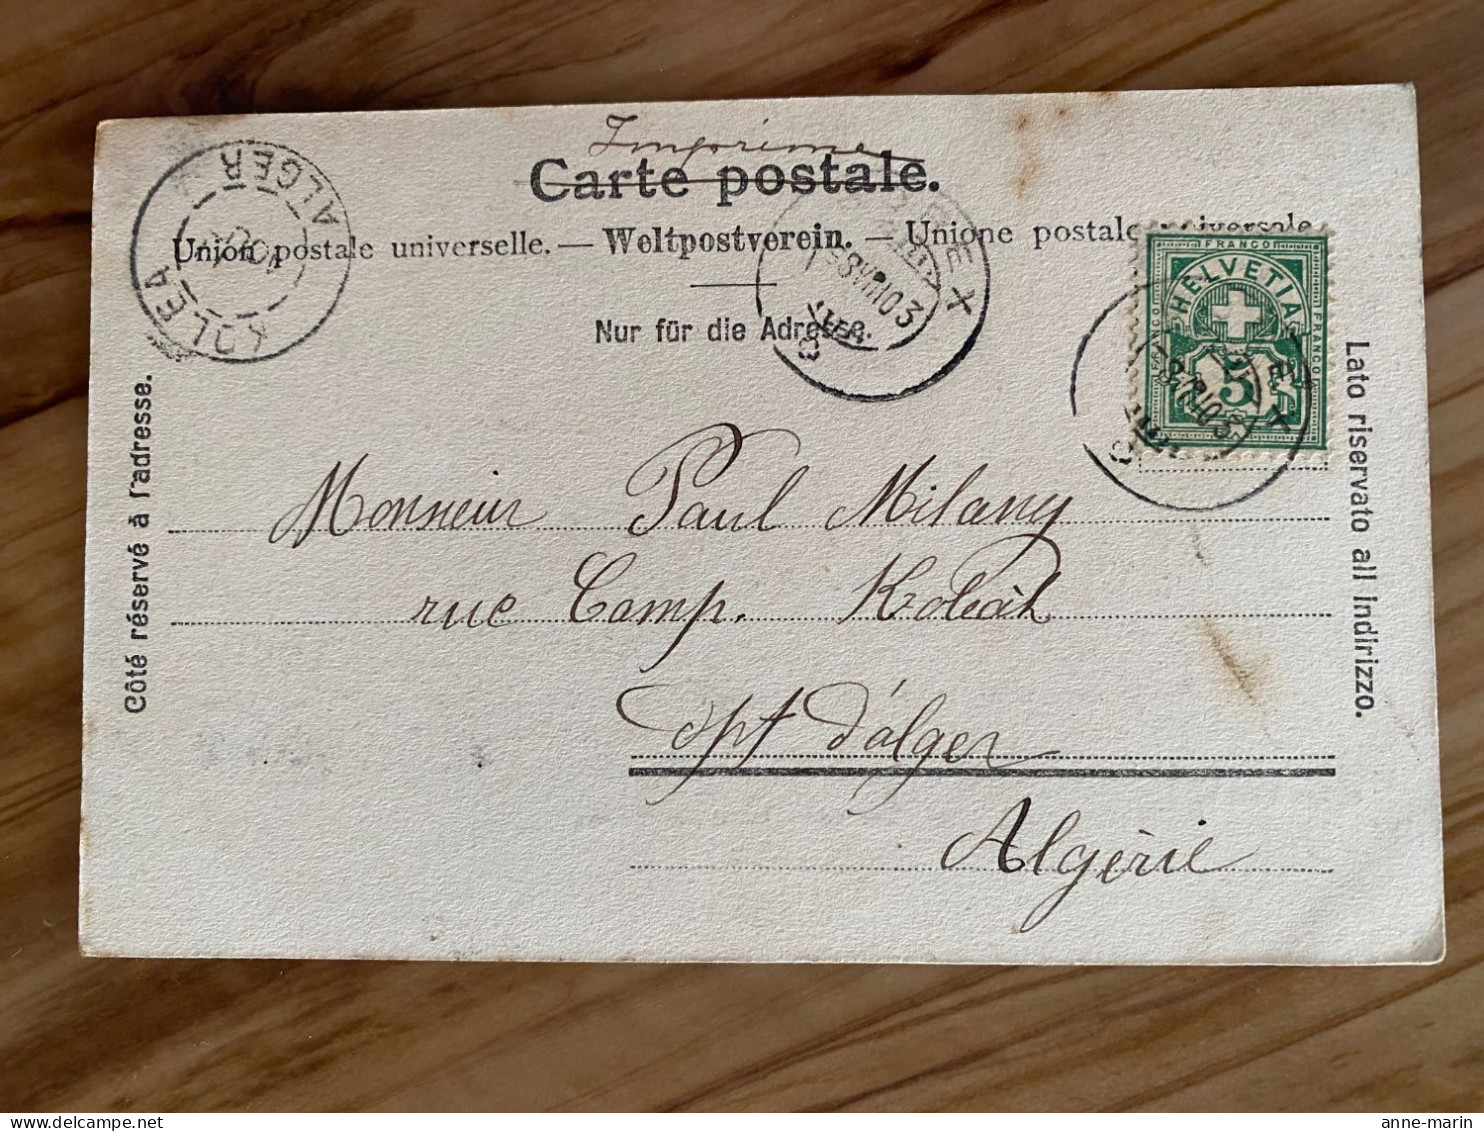 Imprimé
Carte postale.
Union postale universelle. — Weltpostverein. — Unione postale universale
Nur für die Adresse.
Côté réservé à l'adresse.
Lato riservato all indirizzo.
KOLEA
ALGER
BEX
-8 VII 03
FRANCO
HELVETIA
FRANCO
FRANCO
5
BEX
-8 VII 03
Monsieur Paul Milany
rue Camp. Koléah
dpt d'alger
Algérie
anne-marin